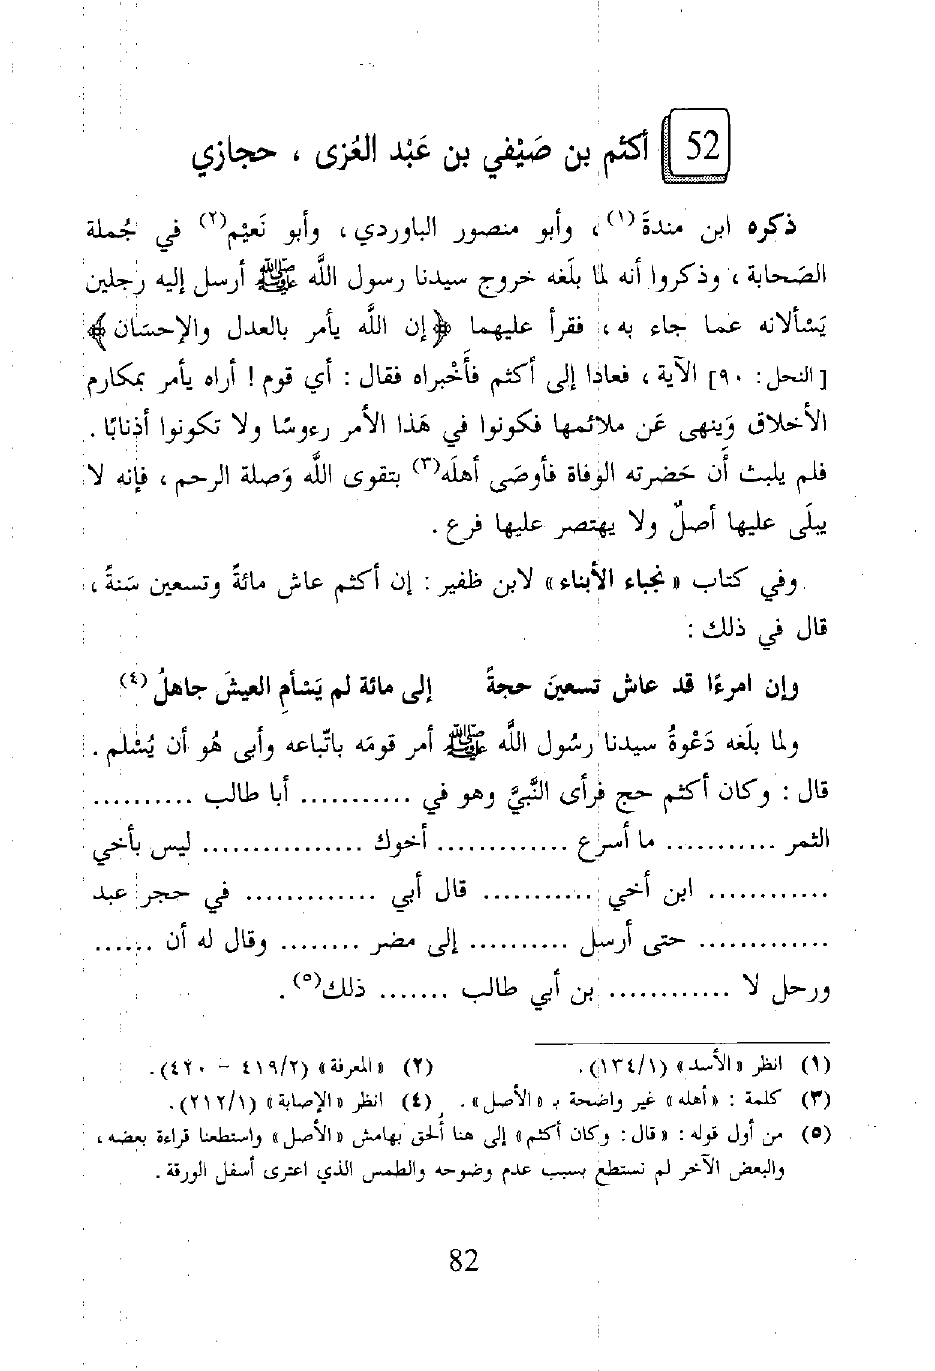 52 أكثم بن صَيْفي بن عَبْد العُزى ، حجازي
ذكره ابن مندةَ(١)، وأبو منصور الباوردي، وأبو نَعيْم(٢) في جُملة
الصَحابة ، وذكروا أنه لما بلَغه خروج سيدنا رسول اللَّه ﷺ أرسل إليه رجلين
يَسْألانه عما جاء به ، فقرأ عليهما ﴿إن اللَّه يأمر بالعدل والإحسَان﴾
[النحل: ٩٠] الآية ، فعادَا إلى أكثم فأَخْبراه فقال : أي قوم ! أراه يأمر بمكارم
الأخلاق وَينهى عَن ملائمها فكونوا في هَذا الأمر رءوسًا ولا تكونوا أذنابًا .
فلم يلبث أن حَضرته الوفاة فأوصَى أهلَه(٣) بتقوى اللَّه وَصلة الرحم ، فإنه لا
يبلَى عليها أصلٌ ولا يهتصر عليها فرع .
وفي كتاب « نجباء الأبناء » لابن ظفير : إن أكثم عاش مائةً وتسعين سَنةً ،
قال في ذلك :
وإن امرءًا قد عاش تسعينَ حجةً إلى مائة لم يَسْأمِ العيشَ جاهلُ(٤)
ولما بلَغه دَعْوةُ سيدنا رسُول اللَّه ﷺ أمر قومَه باتّباعه وأبى هُو أن يُسْلم .
قال : وكان أكثم حج فرأى النَّبيَّ وهو في ........... أبا طالب ..........
الثمر ........... ما أسرع ............. أخوك ................ ليس بأخي
............ ابن أخي ........... قال أبي ............. في حجر عبد
............. حتى أرسل .......... إلى مضر ........ وقال له أن ......
ورحل لا ............ بن أبي طالب ....... ذلك(٥) .
(١) انظر «الأسد» (١٣٤/١). (٢) «المعرفة» (٤١٩/٢ – ٤٢٠).
(٣) كلمة : «أهله» غير واضحة بـ «الأصل» . (٤) انظر «الإصابة» (٢١٢/١).
(٥) من أول قوله : «قال : وكان أكثم» إلى هنا أُلحق بهامش «الأصل» واستطعنا قراءة بعضه ،
والبعض الآخر لم نستطع بسبب عدم وضوحه والطمس الذي اعترى أسفل الورقة .
82